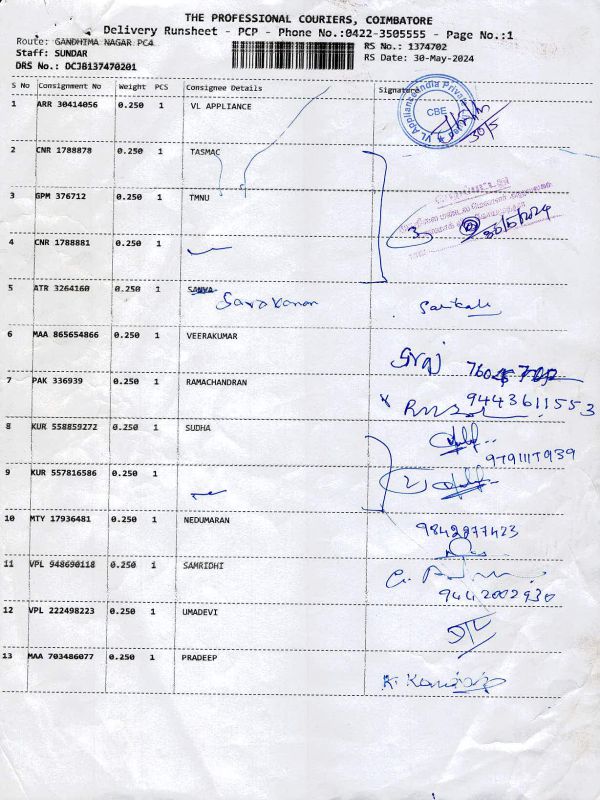 THE PROFESSIONAL COURIERS, COIMBATORE
Delivery Runsheet - PCP - Phone No.:0422-3505555 - Page No.:1
Route: GANDHIMA NAGAR PC4
Staff: SUNDAR
DRS No.: DCJB137470201
RS No.: 1374702
RS Date: 30-May-2024
S No Consignment No Weight PCS Consignee Details Signature
1 ARR 30414056 0.250 1 VL APPLIANCE
CBE
30/5
2 CNR 1788878 0.250 1 TASMAC
3 GPM 376712 0.250 1 TMNU
3 30/5/2024
4 CNR 1788881 0.250 1
5 ATR 3264160 0.250 1 SANYA
Saravanan
6 MAA 865654866 0.250 1 VEERAKUMAR
7 PAK 336939 0.250 1 RAMACHANDRAN
9443611553
8 KUR 558859272 0.250 1 SUDHA
9 KUR 557816586 0.250 1
2
10 MTY 17936481 0.250 1 NEDUMARAN
9842877423
11 VPL 948690118 0.250 1 SAMRIDHI
9442002930
12 VPL 222498223 0.250 1 UMADEVI
13 MAA 703486077 0.250 1 PRADEEP